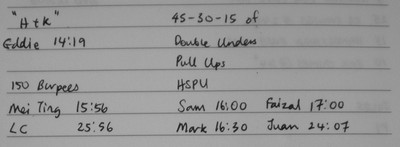 "H+K" 45-30-15 of
Eddie 14:19 Double Unders
Pull Ups
150 Burpees HSPU
Mei Ting 15:56 Sam 16:00 Faizal 17:00
LC 25:56 Mark 16:30 Juan 24:07